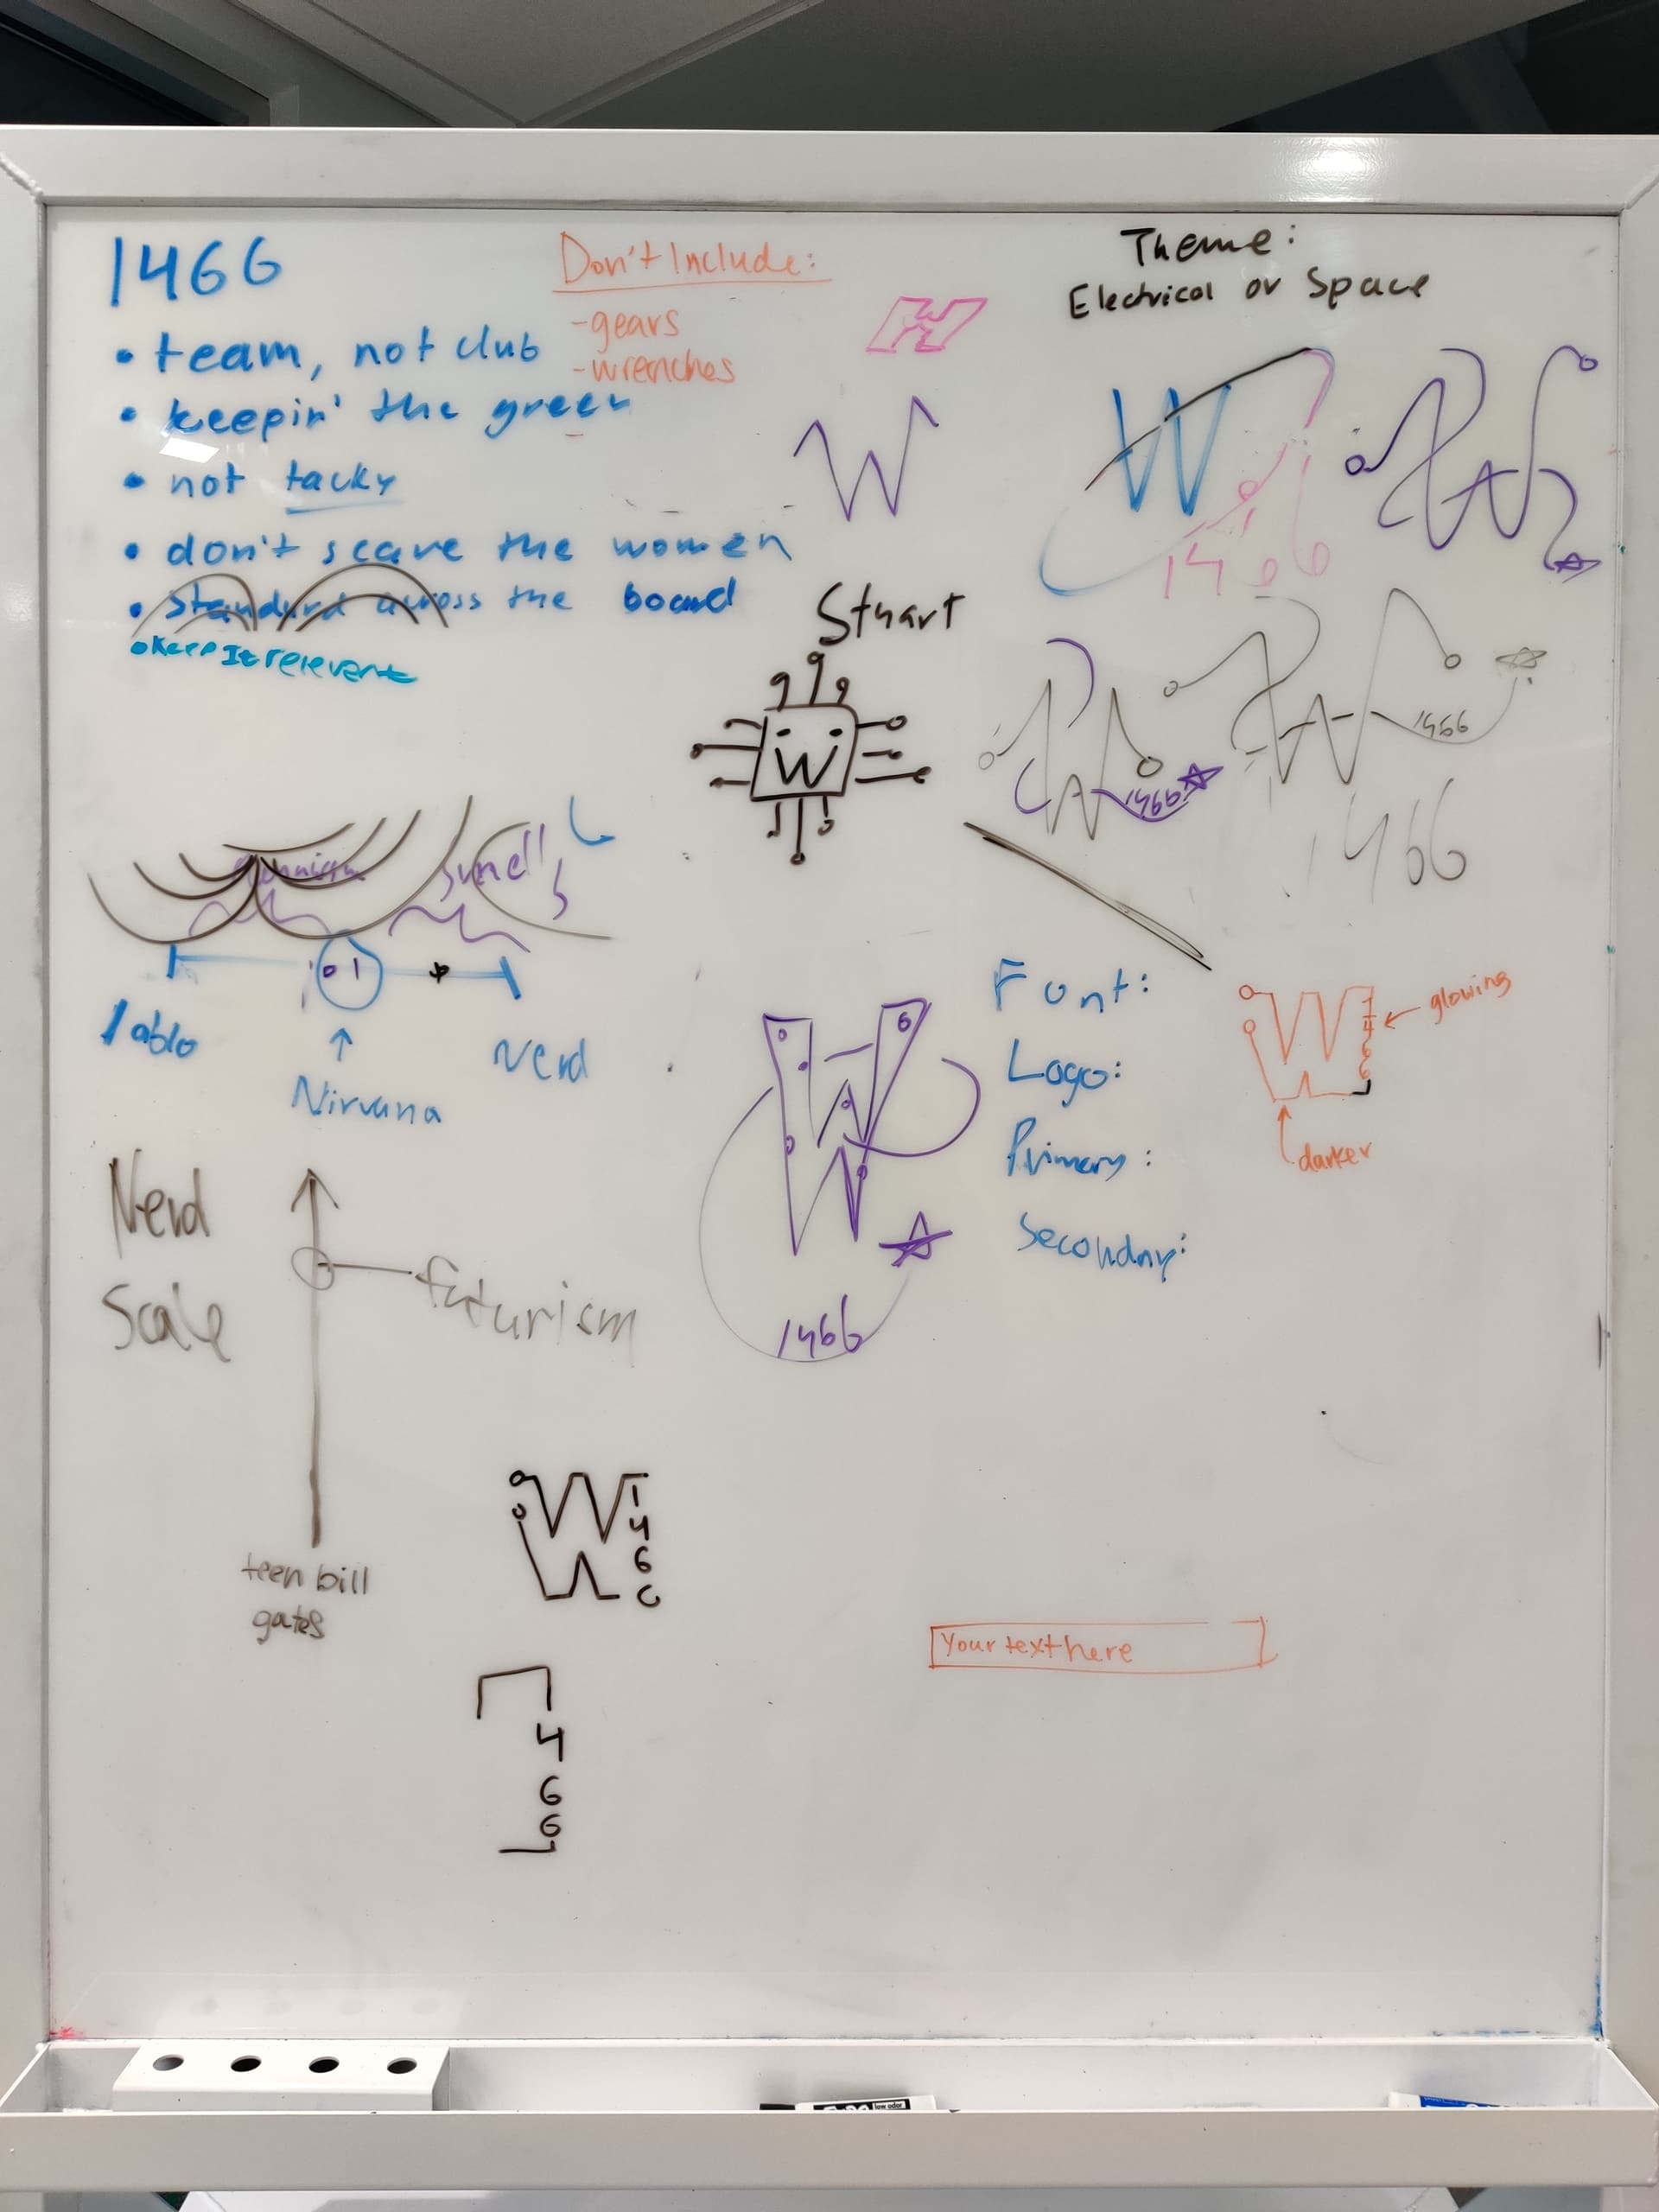 1466
• team, not club
• keepin' the green
• not tacky
• don't scare the women
• standard across the board
• Keep It relevent
Don't Include:
-gears
-wrenches
Theme:
Electrical or Space
W
W
1466
W
Stuart
W
1466
1466
1466
smell
01
Nirvana
Nerd
Nerd
Scale
futurism
teen bill
gates
W
1466
Font:
Logo:
Primary:
Secondary:
W
1466
glowing
darker
W
1
4
6
6
Your text here